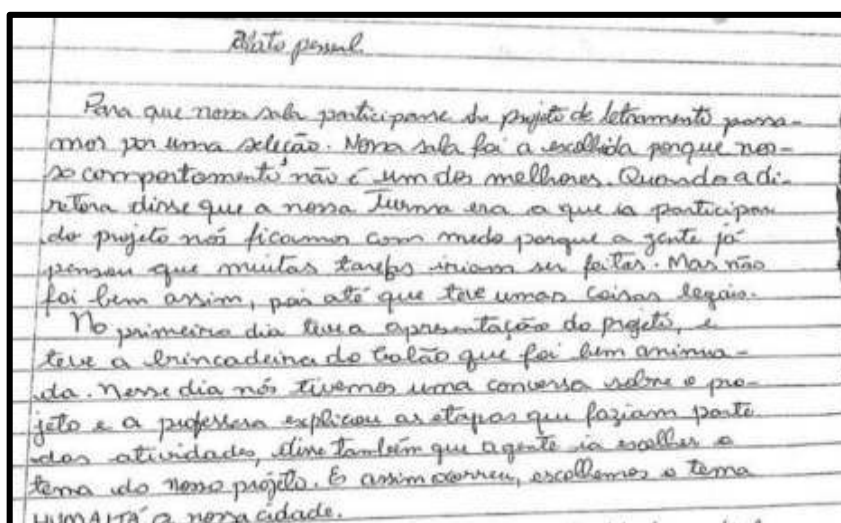 Relato pessoal
Para que nossa sala participasse do projeto de letramento passa-
mos por uma seleção. Nossa sala foi a escolhida porque nos-
so comportamento não é um dos melhores. Quando a di-
retora disse que a nossa Turma era a que ia participar
do projeto nós ficamos com medo porque a gente já
pensou que muitas tarefas iriam ser feitas. Mas não
foi bem assim, pois até que teve umas coisas legais.
No primeiro dia teve a apresentação do projeto, e
teve a brincadeira do balão que foi bem anima-
da. Nesse dia nós tivemos uma conversa sobre o pro-
jeto e a professora explicou as etapas que faziam parte
das atividades, disse também que agente ia escolher o
tema do nosso projeto. E assim ocorreu, escolhemos o tema
HUMAITÁ a nossa cidade.